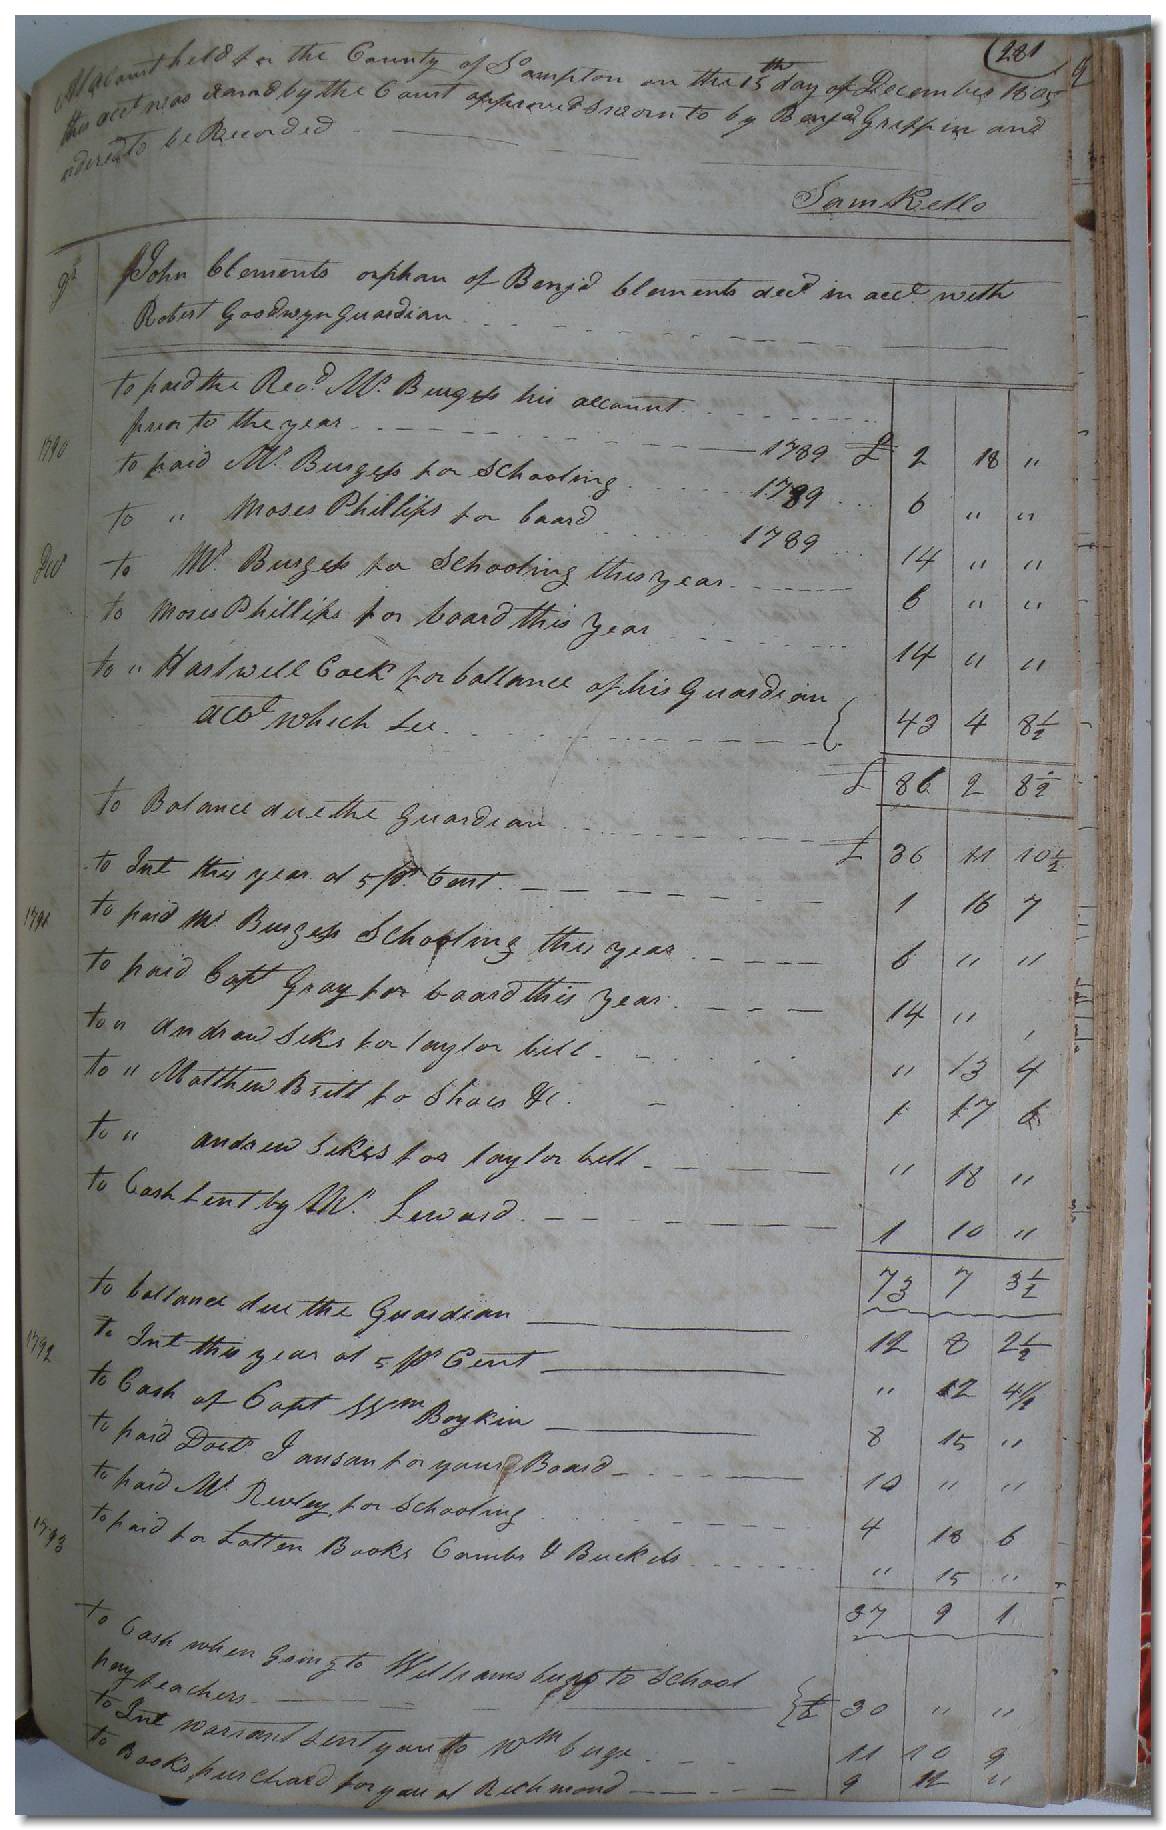 (281
At a Court held for the County of So ampton on the 15th day of December 1805
this acct was examd by the Court approved sworn to by Benjad Griffin and
ordered to be Recorded
Sam Kello
Dr John Clements orphan of Benjd Clements decd in acct with
Robert Goodwyn Guardian
to paid the Revd Mr Burgess his account
prior to the year 1789 £ 2 18 "
1790 to paid Mr Burgess for Schooling 1789 6 " "
to " Moses Phillips for board 1789 14 " "
to Mr Burgess for Schooling this year 6 " "
to Moses Phillips for board this year 14 " "
to " Hartwell Cock for ballance of his Guardian
acct which See 43 4 8½
£ 86 2 8½
to Balance due the Guardian £ 36 11 10½
to Int this year at 5 Pr Cent 1 16 7
1791 to paid Mr Burgess Schooling this year 6 " "
to paid Capt Gray for board this year 14 "
to " Andrew Sikes for taylor bill " 13 4
to " Matthew Britt for Shoes &c 1 17 6
to " andrew Sikes for taylor bill " 18 "
to Cash Sent by Mr Seward 1 10 "
73 7 3½
to ballance due the Guardian 12 8 2½
1792 to Int this year at 5 Pr Cent " 12 4½
to Cash of Capt Wm Boykin 8 15 "
to paid Doctr for your Board 10 " "
to paid Mr for Schooling 4 18 6
1793 to paid for Latten Books Combs & Buckels " 15 "
37 9 1
to Cash when going to Williamsburg to School
pay teachers £ 30 " "
to Int warrant Sent you to Wmburge 11 10 9
to Books purchasd for you at Richmond 9 12 "